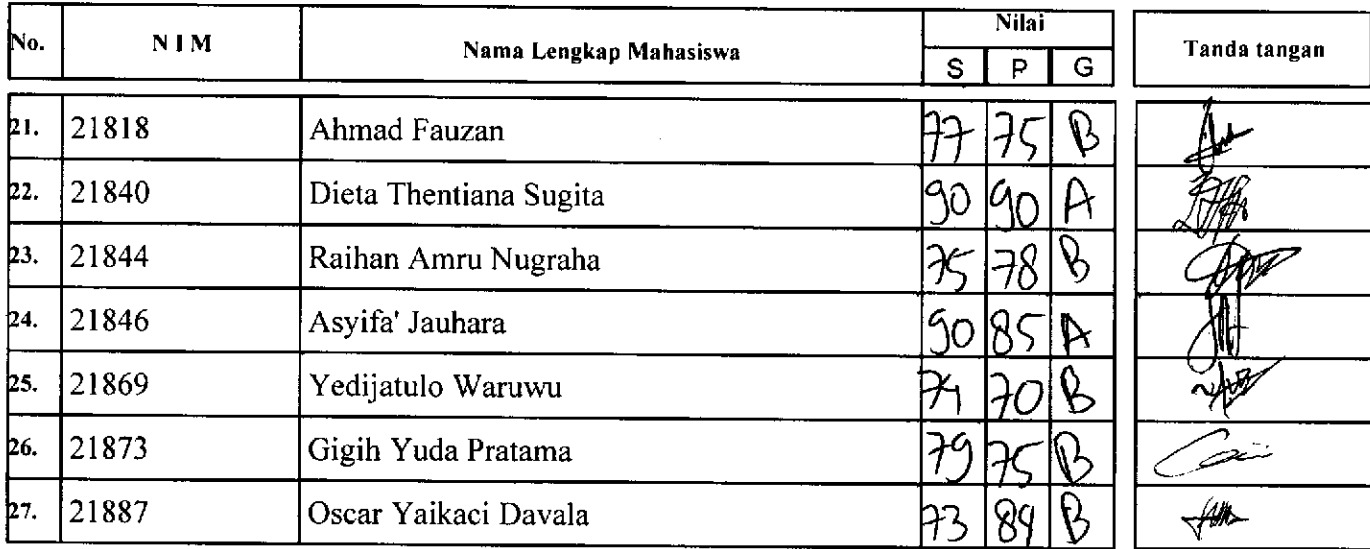 No. N I M Nama Lengkap Mahasiswa Nilai Tanda tangan
S P G
21. 21818 Ahmad Fauzan 77 75 B
22. 21840 Dieta Thentiana Sugita 90 90 A
23. 21844 Raihan Amru Nugraha 75 78 B
24. 21846 Asyifa' Jauhara 90 85 A
25. 21869 Yedijatulo Waruwu 74 70 B
26. 21873 Gigih Yuda Pratama 79 75 B
27. 21887 Oscar Yaikaci Davala 73 84 B